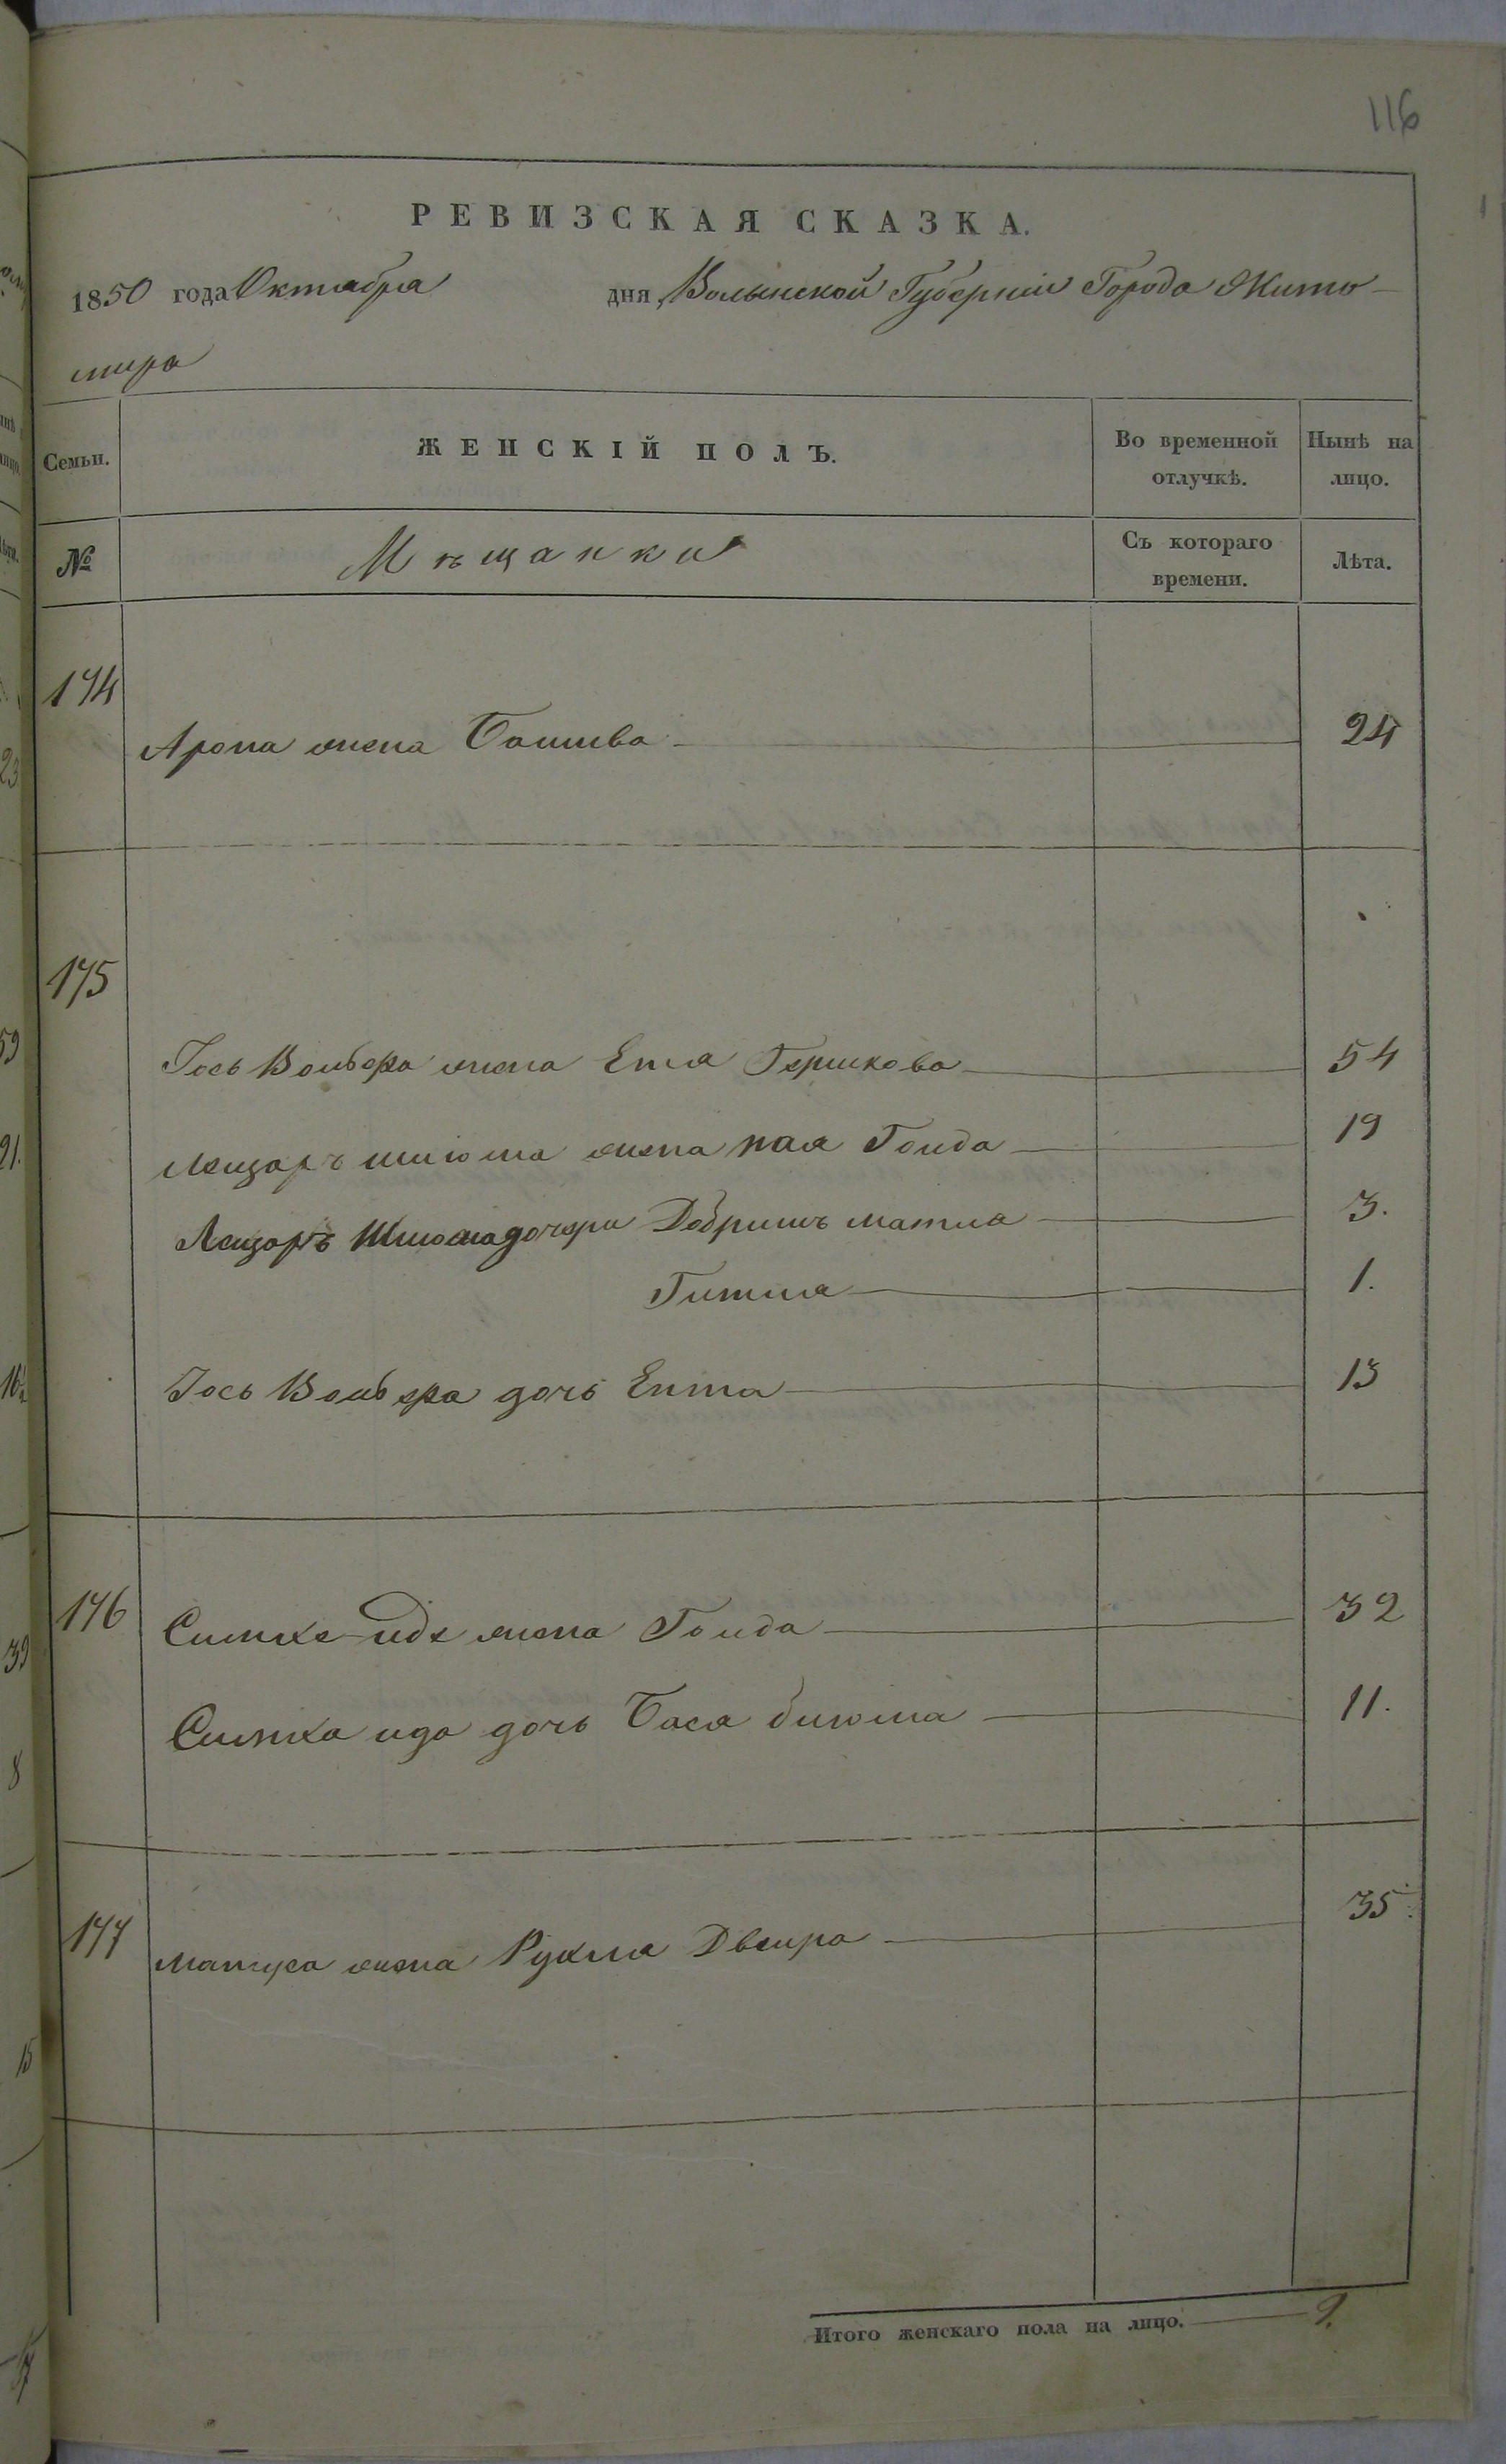 116
РЕВИЗСКАЯ СКАЗКА.
1850 года Октября дня Волынской Губерніи Города Жито-
мира
Семьи. ЖЕНСКІЙ ПОЛЪ. Во временной отлучкѣ. Нынѣ на лицо.
№ Мѣщанки Съ котораго времени. Лѣта.
174
Арона жена Башива 24
175
Іось Вольфа жена Етя Гершкова 54
Лейзаръ Шлюма жена Хая Голда 19
Лейзаръ Шлюма дочери Добришъ матля 3.
Гитля 1.
Іось Вольфа дочь Ента 13
176 Симхе иде жена Голда 32
Симха ида дочь Бася блюма 11.
177 Матуса жена Рухля Двейра 35.
Итого женскаго пола на лицо. 9.